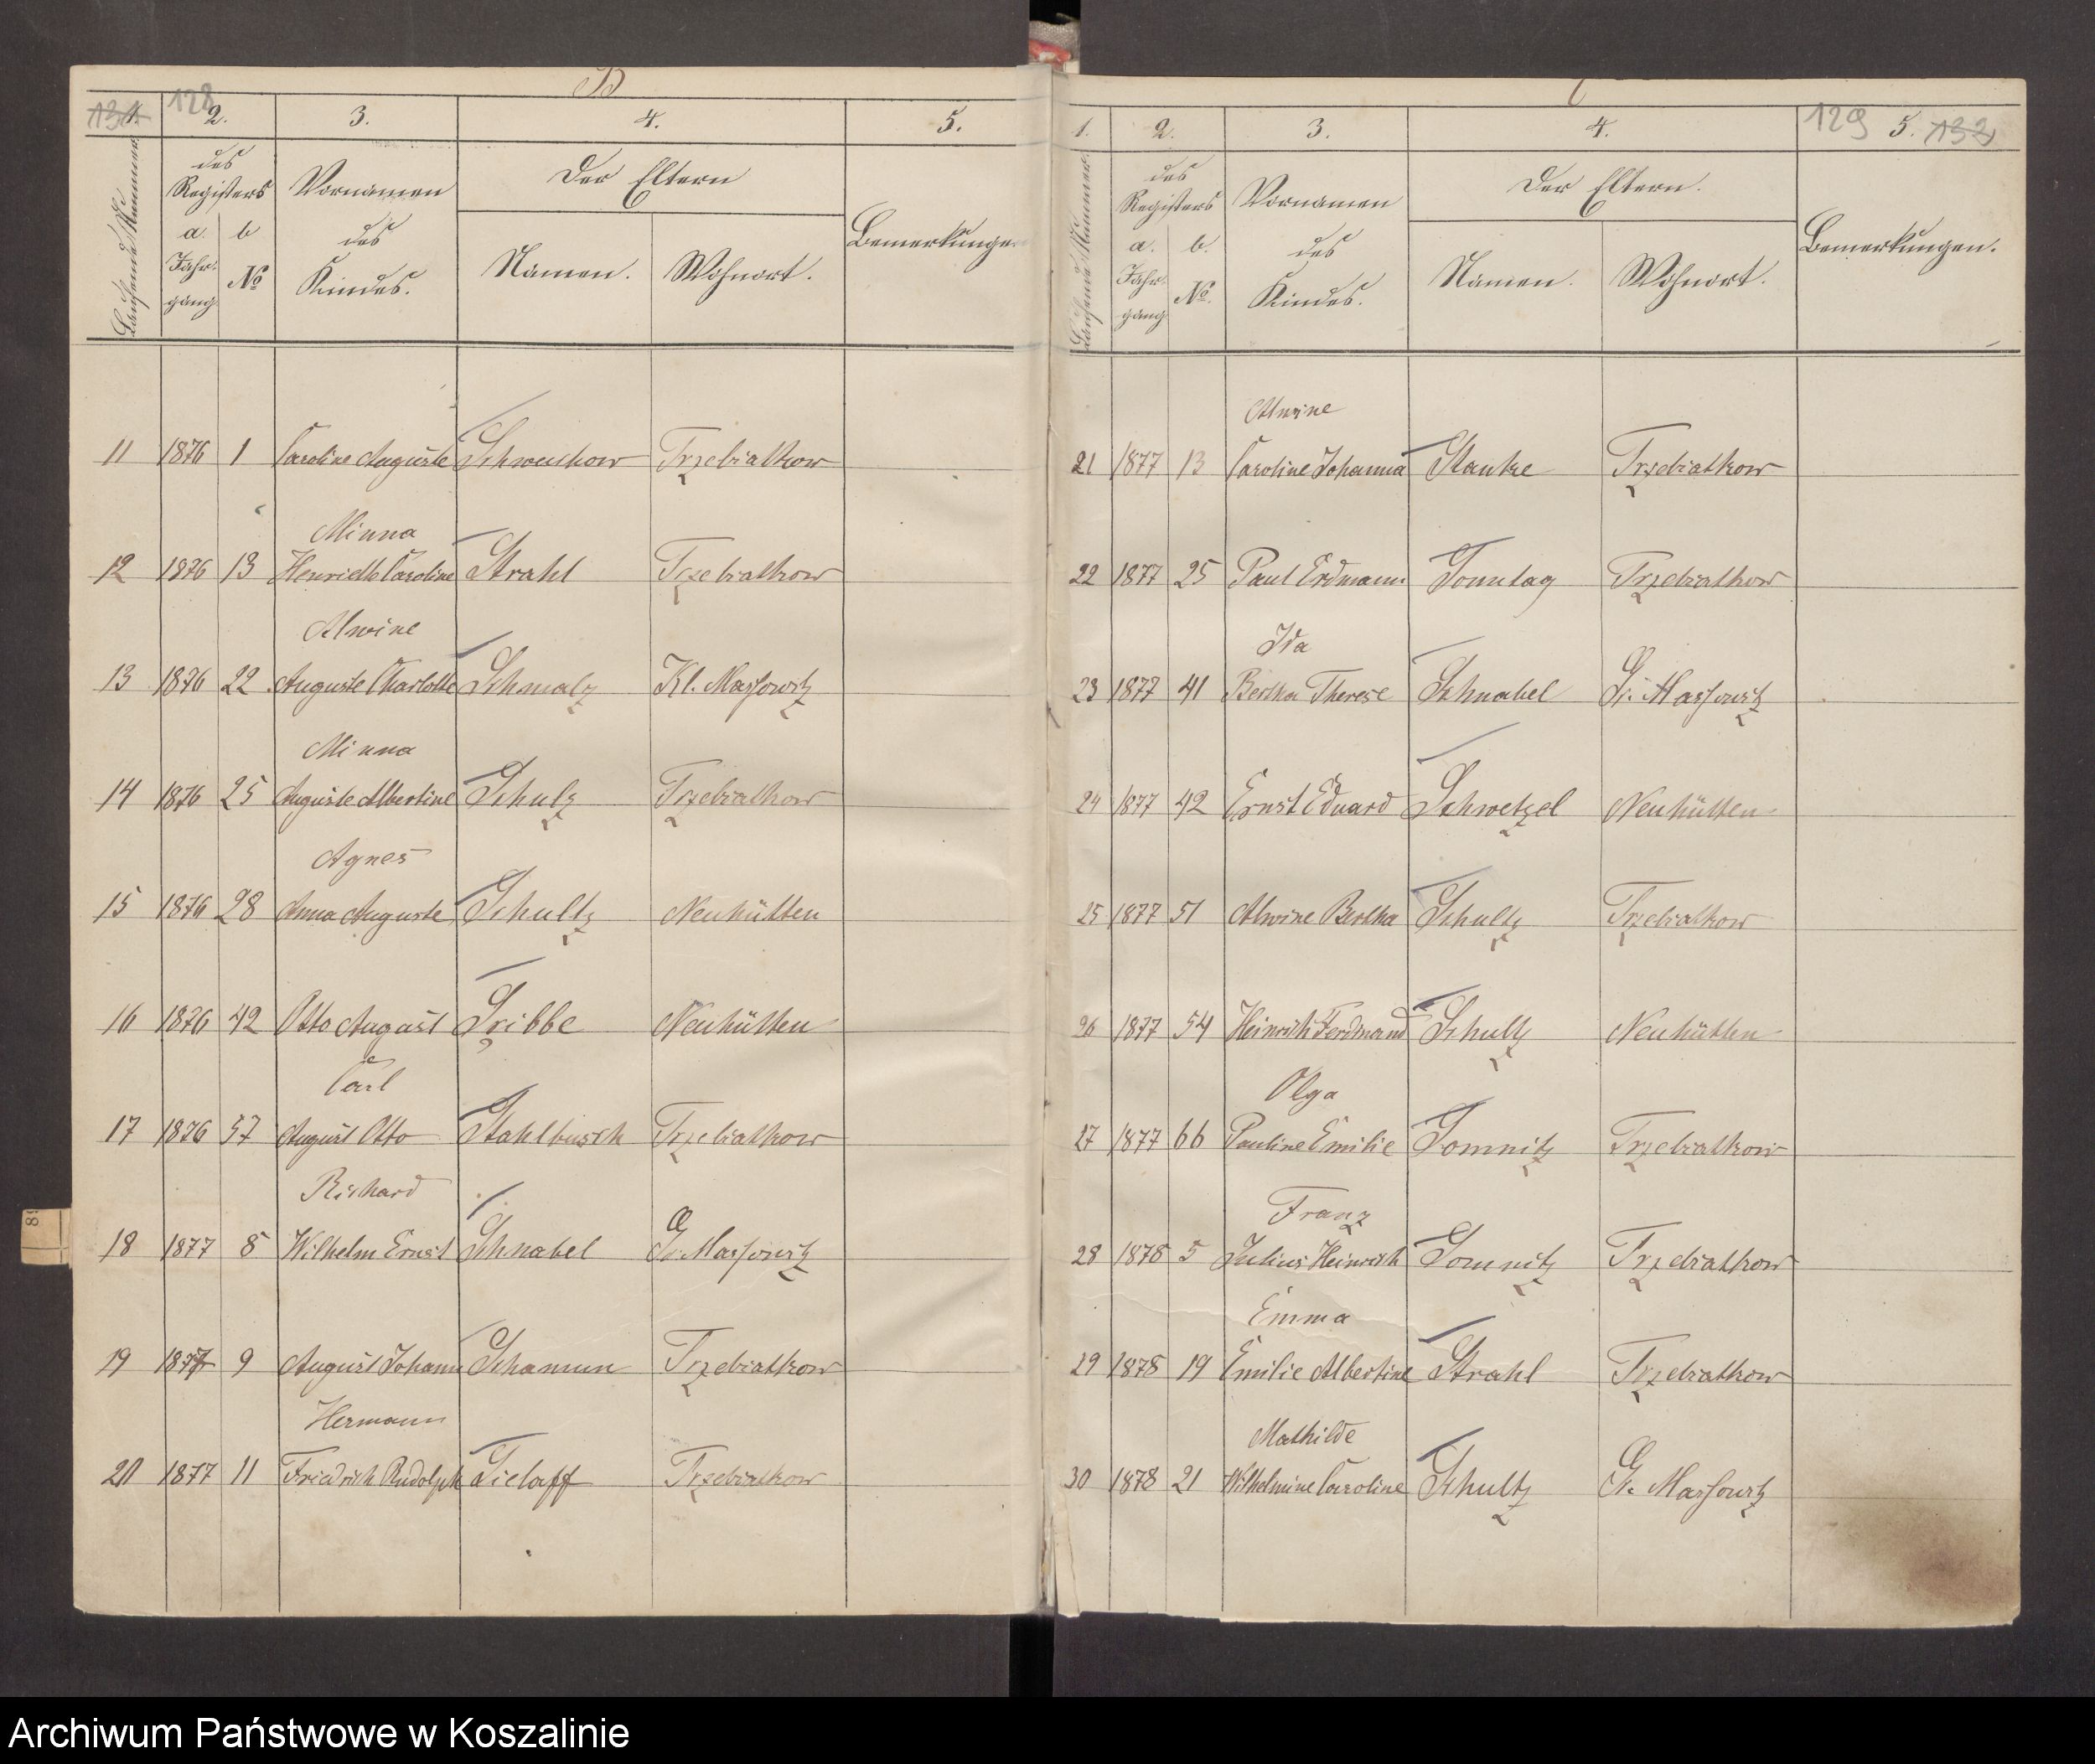 131 128
1. 2. 3. 4. 5.
Laufende Nummer.
des Registers
a. Jahrgang
b No
Vornamen des Kindes.
Der Eltern
Namen. Wohnort.
Bemerkungen
11 1876 1 Caroline Auguste Schweschow Trzebiatkow
Minna
12 1876 13 Henriette Caroline Strahl Trzebiatkow
Alwine
13 1876 22 Auguste Charlotte Schmalz Kl. Massowitz
Minna
14 1876 25 Auguste Albertine Schulz Trzebiatkow
Agnes
15 1876 28 Anna Auguste Schultz Neuhütten
16 1876 42 Otto August Sribbe Neuhütten
Carl
17 1876 57 August Otto Stahlbusch Trzebiatkow
Richard
18 1877 8 Wilhelm Ernst Schnabel Gr. Massowitz
19 1877 9 August Johann Schamun Trzebiatkow
Hermann
20 1877 11 Friedrich Rudolph Sielaff Trzebiatkow
129 132
1. 2. 3. 4. 5.
Laufende Nummer.
des Registers
a. Jahrgang
b. No.
Vornamen des Kindes.
Der Eltern.
Namen. Wohnort.
Bemerkungen.
Alwine
21 1877 13 Caroline Johanna Stanke Trzebiatkow
22 1877 25 Paul Erdmann Sonntag Trzebiatkow
Ida
23 1877 41 Bertha Therese Schnabel Gr. Massowitz
24 1877 42 Ernst Eduard Schwetzel Neuhütten
25 1877 51 Alwine Bertha Schultz Trzebiatkow
26 1877 54 Heinrich Ferdinand Schultz Neuhütten
Olga
27 1877 66 Pauline Emilie Somnitz Trzebiatkow
Franz
28 1878 5 Julius Heinrich Somnitz Trzebiatkow
Emma
29 1878 19 Emilie Albertine Strahl Trzebiatkow
Mathilde
30 1878 21 Wilhelmine Caroline Schultz Gr. Massowitz
Archiwum Państwowe w Koszalinie